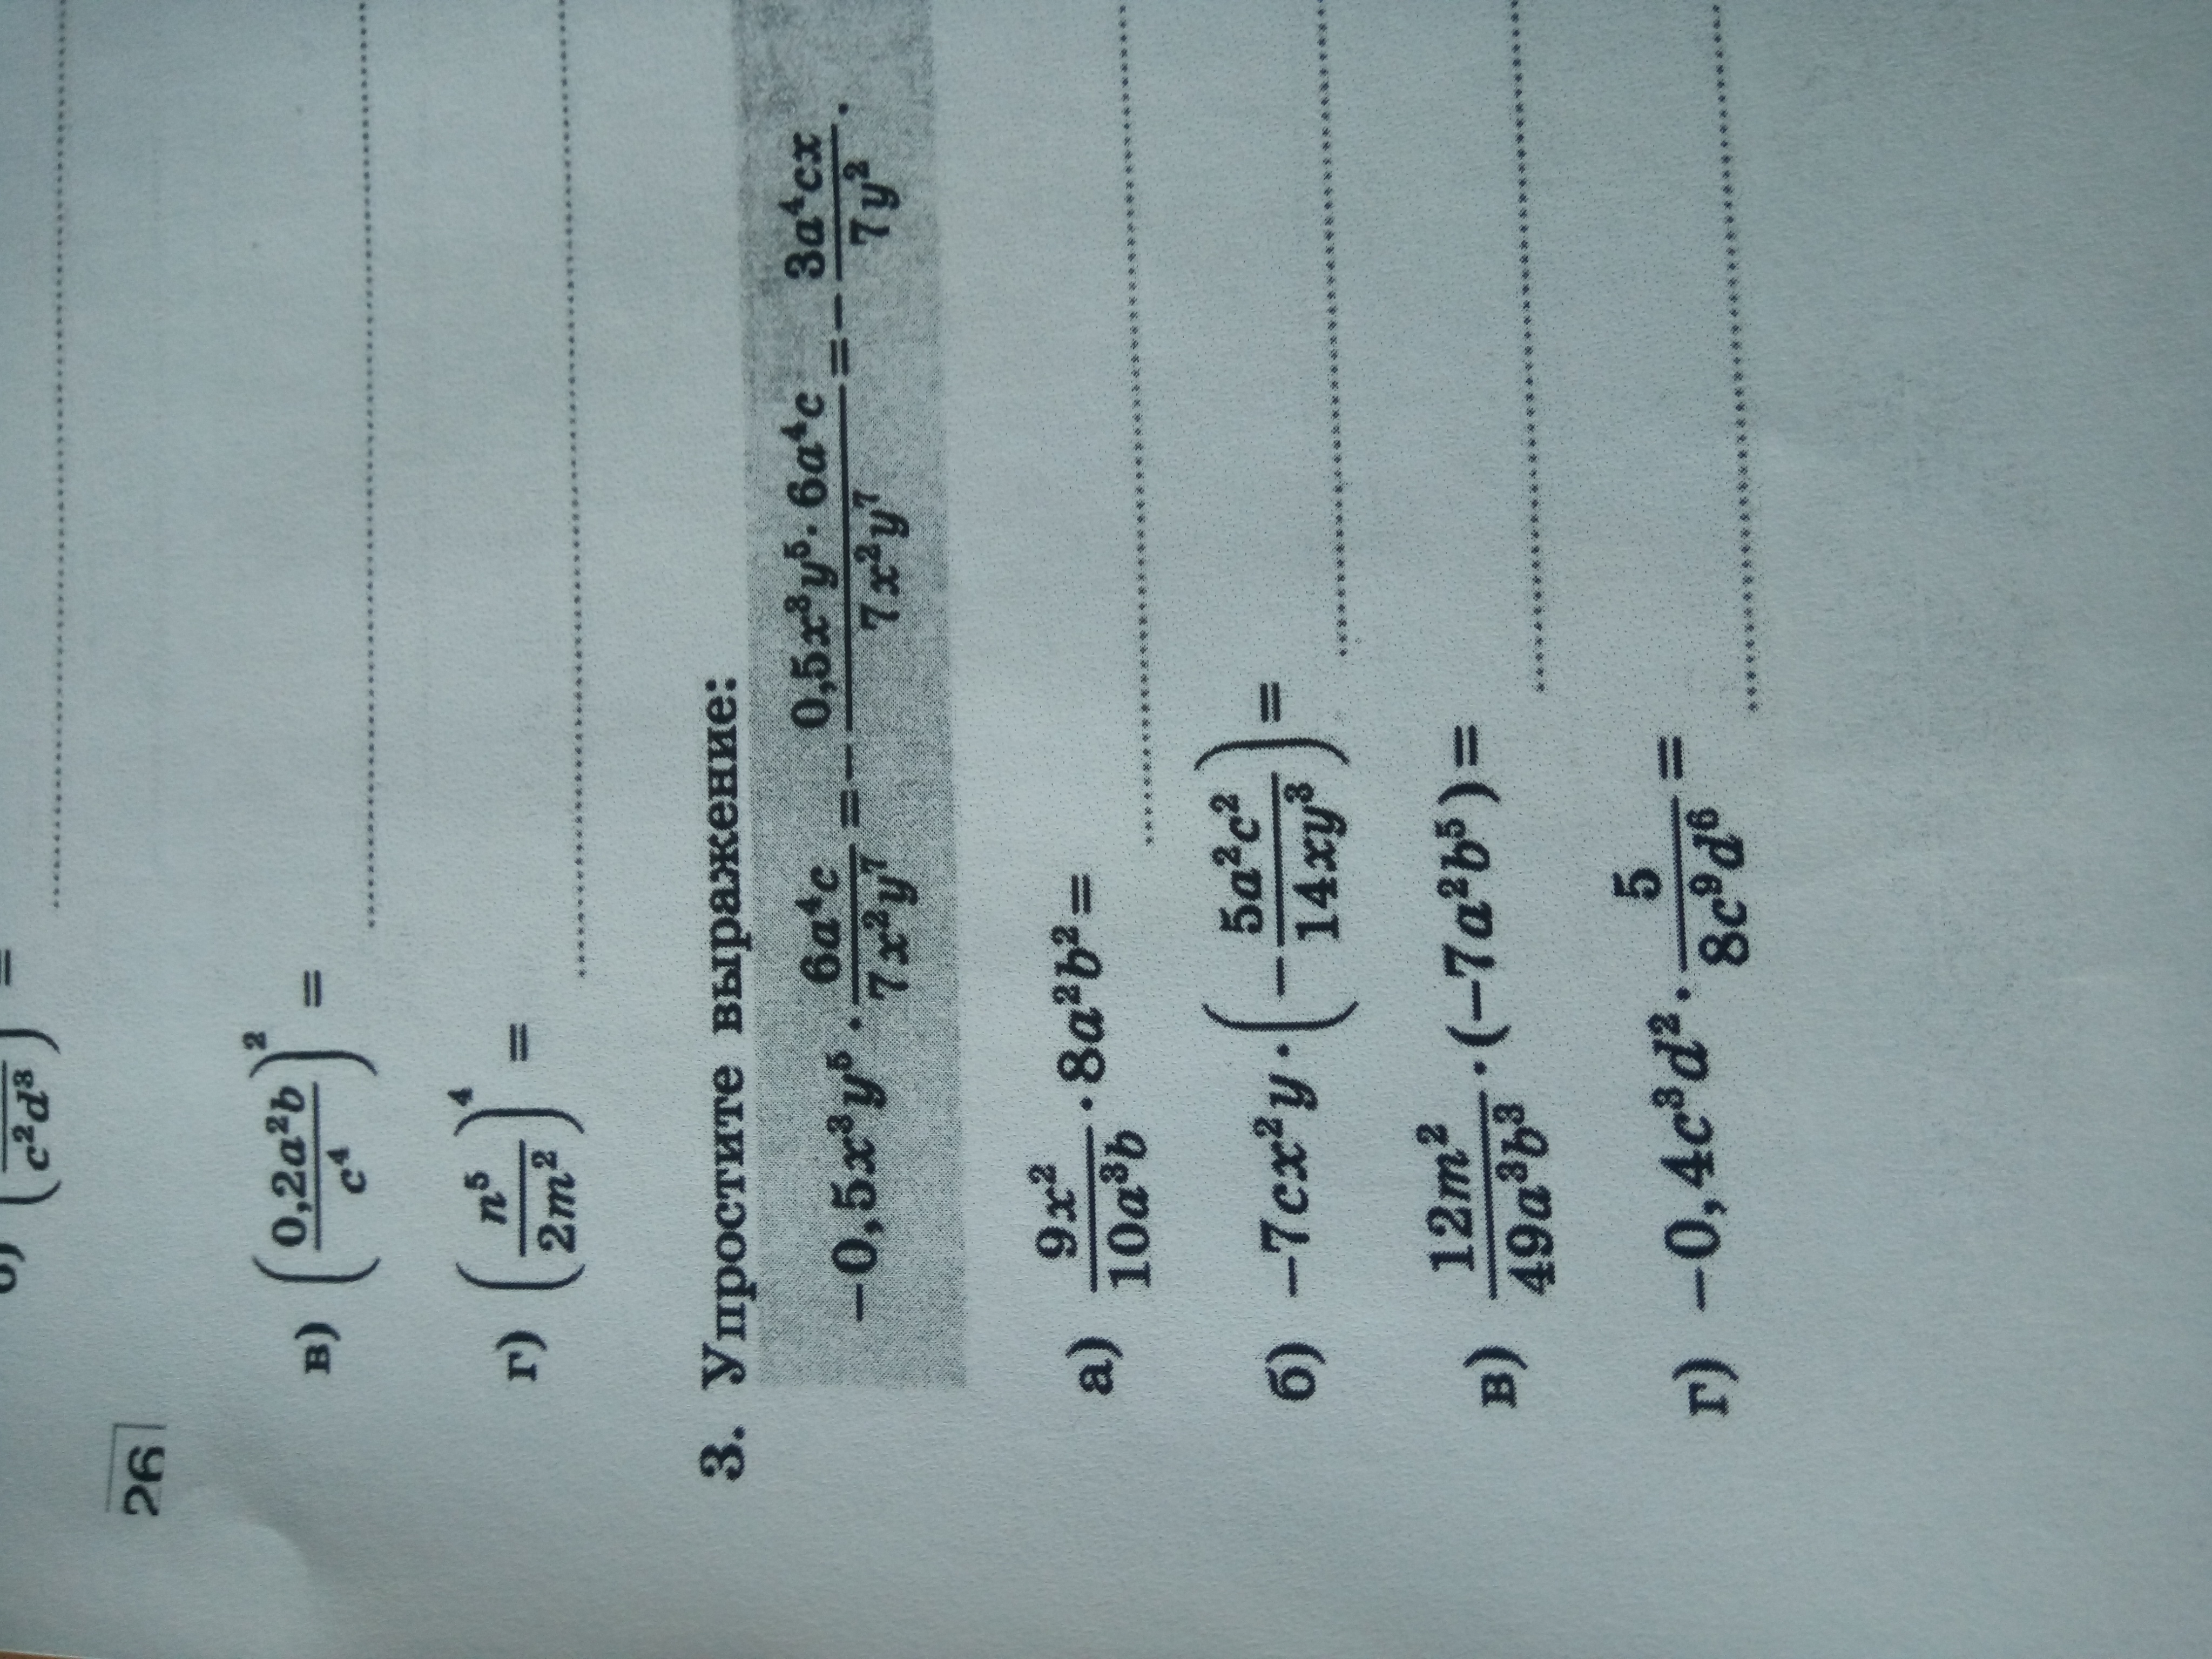 (/c²d³) =
26
в) (0,2a²b/c⁴)² =
г) (n⁵/2m²)⁴ =
3. Упростите выражение:
−0,5x³y⁵ · 6a⁴c/7x²y⁷ = − 0,5x³y⁵ · 6a⁴c/7x²y⁷ = − 3a⁴cx/7y².
а) 9x²/10a³b · 8a²b² =
б) −7cx²y · (− 5a²c²/14xy³) =
в) 12m²/49a³b³ · (−7a²b⁵) =
г) −0,4c³d² · 5/8c⁹d⁶ =